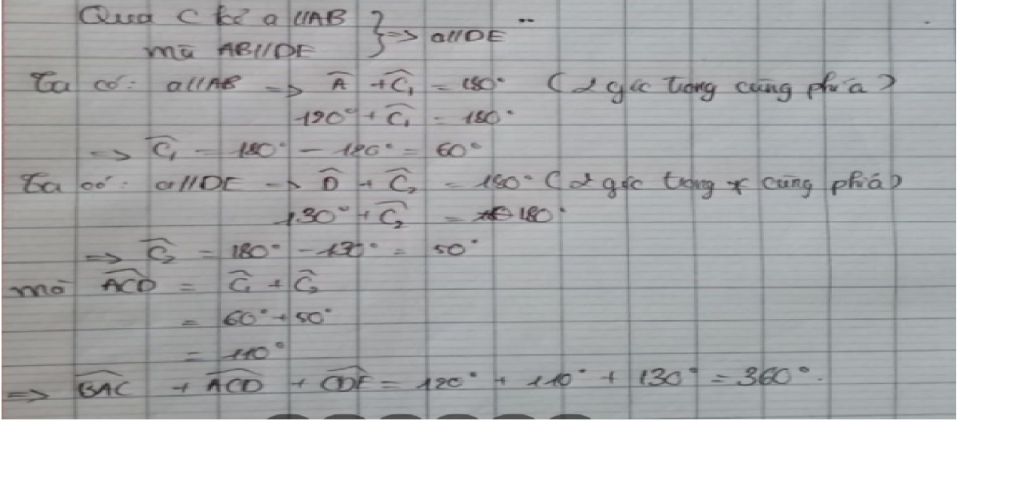 Qua C kẻ a // AB } => a // DE
mà AB // DE
Ta có: a // AB => Â + Ĉ₁ = 180° (2 góc trong cùng phía)
120° + Ĉ₁ = 180°
=> Ĉ₁ = 180° - 120° = 60°
Ta có: a // DE => D̂ + Ĉ₂ = 180° (2 góc trong cùng phía)
130° + Ĉ₂ = 180°
=> Ĉ₂ = 180° - 130° = 50°
mà ACD = Ĉ₁ + Ĉ₂
= 60° + 50°
= 110°
=> BAC + ACD + CDE = 120° + 110° + 130° = 360°.